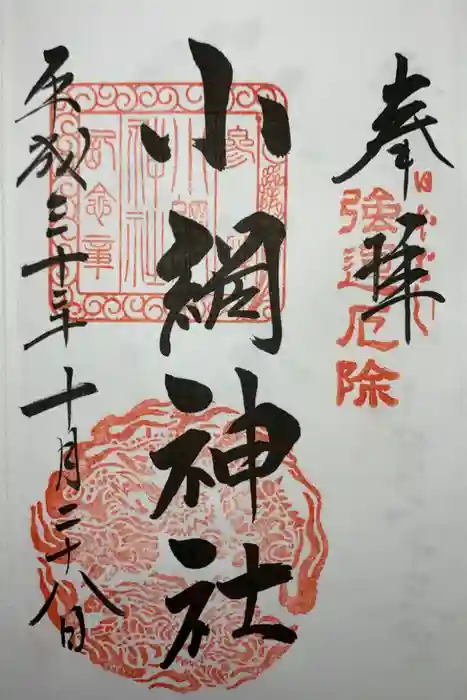 奉拝
強運厄除
小網神社
参拝
小網
神社
記念章
平成三十年十月二十八日